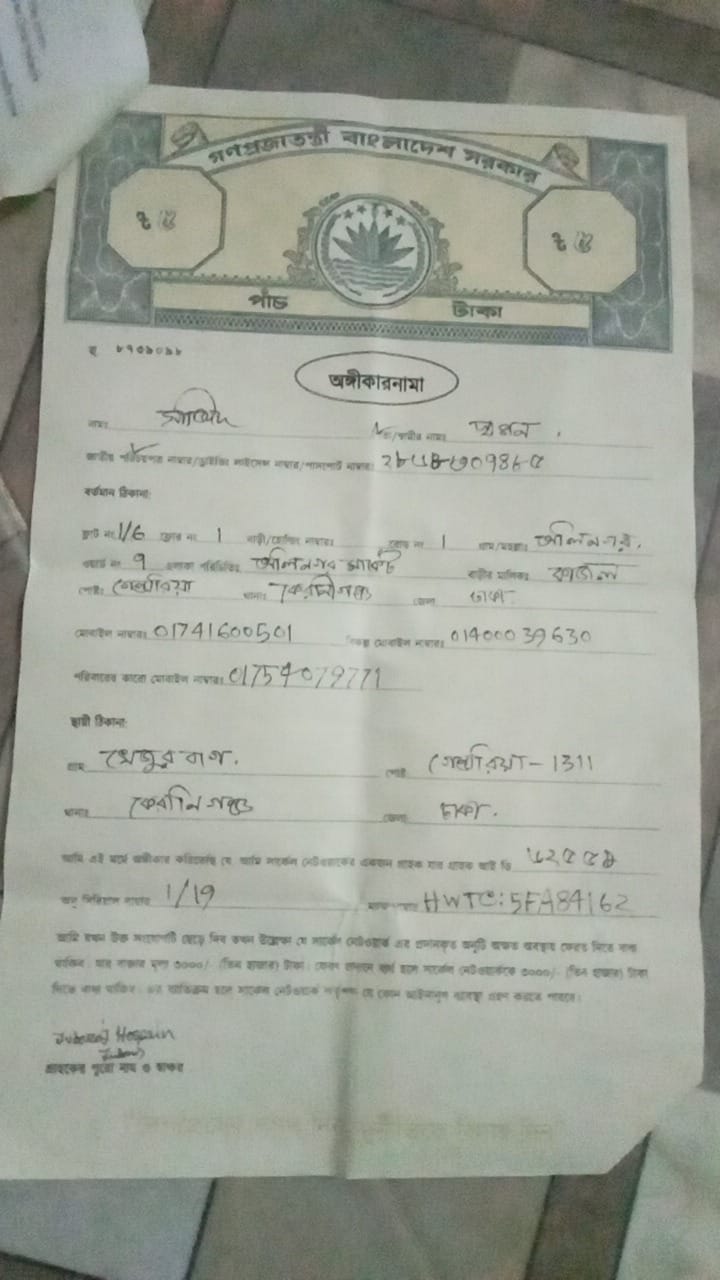 গণপ্রজাতন্ত্রী বাংলাদেশ সরকার
৳ ৫ ৳ ৫
পাঁচ টাকা
অঙ্গীকারনামা
নামঃ পিতা/স্বামীর নামঃ স্বপন
জাতীয় পরিচয়পত্র নাম্বার/ড্রাইভিং লাইসেন্স নাম্বার/পাসপোর্ট নাম্বারঃ
বর্তমান ঠিকানা:
ফ্লাট নং 1/6 ফ্লোর নং 1 বাড়ী/হোল্ডিং নাম্বারঃ রোড নং 1 গ্রাম/মহল্লাঃ আলিনগর,
ওয়ার্ড নং 9 এলাকা পরিচিতিঃ আলিনগর মার্কেট বাড়ীর মালিকঃ কাজল
পোষ্টঃ গেন্ডারিয়া থানাঃ কেরানীগঞ্জ জেলা ঢাকা
মোবাইল নাম্বারঃ 01741600501 বিকল্প মোবাইল নাম্বারঃ 01400039630
পরিবারের কারো মোবাইল নাম্বারঃ 01754079771
স্থায়ী ঠিকানা:
গ্রামঃ খেজুর বাগ. পোষ্টঃ গেন্ডারিয়া - 1311
থানাঃ কেরানিগঞ্জ জেলাঃ ঢাকা.
আমি এই মর্মে অঙ্গীকার করিতেছি যে আমি সার্কেল নেটওয়ার্কের একজন গ্রাহক যার গ্রাহক আই ডি
অনু সিরিয়াল নাম্বার 1/19 HWTC:5FA84162
আমি যখন উক্ত সংযোগটি ছেড়ে দিব তখন উল্লেখ্য যে সার্কেল নেটওয়ার্ক এর প্রদানকৃত অনুটি অক্ষত অবস্থায় ফেরত দিতে বাধ্য
থাকিব। যার বাজার মূল্য ৩০০০/- (তিন হাজার) টাকা। ফেরত প্রদানে ব্যর্থ হলে সার্কেল নেটওয়ার্ককে ৩০০০/- (তিন হাজার) টাকা
দিতে বাধ্য থাকিব। এর ব্যতিক্রম হলে সার্কেল নেটওয়ার্ক কর্তৃপক্ষ যে কোন আইনানুগ ব্যবস্থা গ্রহণ করতে পারবে।
Hossain
গ্রাহকের পুরো নাম ও স্বাক্ষর